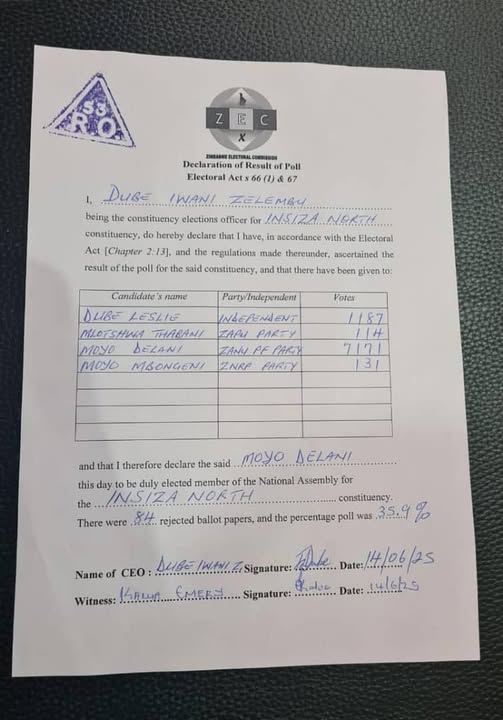 53
R.O.
Z E C
X
ZIMBABWE ELECTORAL COMMISSION
Declaration of Result of Poll
Electoral Act s 66 (1) & 67
I, DUBE IWANI ZELEMBU
being the constituency elections officer for INSIZA NORTH
constituency, do hereby declare that I have, in accordance with the Electoral
Act [Chapter 2:13], and the regulations made thereunder, ascertained the
result of the poll for the said constituency, and that there have been given to:
Candidate's name Party/Independent Votes
DUBE LESLIE INDEPENDENT 1187
MLOTSHWA THABANI ZAPU PARTY 114
MOYO DELANI ZANU PF PARTY 7171
MOYO MBONGENI ZNRP PARTY 131
and that I therefore declare the said MOYO DELANI
this day to be duly elected member of the National Assembly for
the INSIZA NORTH constituency.
There were 84 rejected ballot papers, and the percentage poll was 35.9%
Name of CEO : DUBE IWANI Z Signature: Date: 14/06/25
Witness: EMERY Signature: Date: 14/6/25